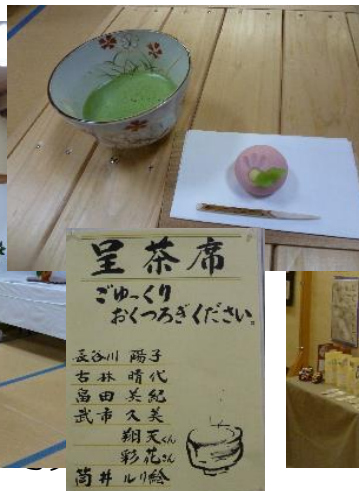 呈茶席
ごゆっくり
おくつろぎください。
長谷川 陽子
古林 晴代
畠田 美紀
武市 久美
翔天くん
彩花さん
筒井 ルリ絵